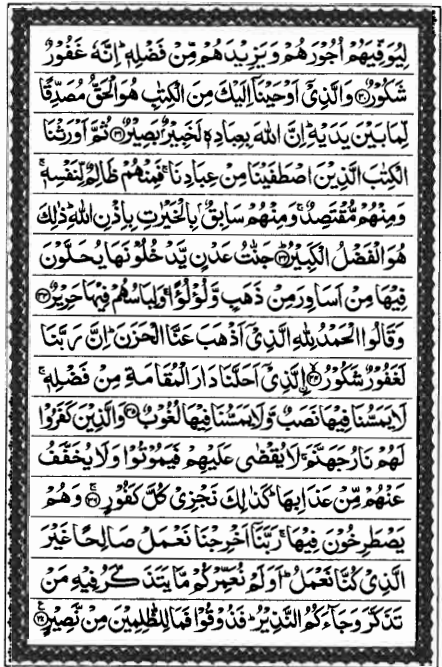 لِيُوَفِّيَهُمْ اُجُوْرَهُمْ وَيَزِيْدَهُمْ مِّنْ فَضْلِهٖ ؕ اِنَّهٗ غَفُوْرٌ
شَكُوْرٌ ﴿۳۰﴾ وَالَّذِيْۤ اَوْحَيْنَاۤ اِلَيْكَ مِنَ الْكِتٰبِ هُوَ الْحَقُّ مُصَدِّقًا
لِّمَا بَيْنَ يَدَيْهِ ؕ اِنَّ اللّٰهَ بِعِبَادِهٖ لَخَبِيْرٌۢ بَصِيْرٌ ﴿۳۱﴾ ثُمَّ اَوْرَثْنَا
الْكِتٰبَ الَّذِيْنَ اصْطَفَيْنَا مِنْ عِبَادِنَا ۚ فَمِنْهُمْ ظَالِمٌ لِّنَفْسِهٖ ۚ
وَمِنْهُمْ مُّقْتَصِدٌ ۚ وَمِنْهُمْ سَابِقٌۢ بِالْخَيْرٰتِ بِاِذْنِ اللّٰهِ ؕ ذٰلِكَ
هُوَ الْفَضْلُ الْكَبِيْرُ ﴿۳۲﴾ جَنّٰتُ عَدْنٍ يَّدْخُلُوْنَهَا يُحَلَّوْنَ
فِيْهَا مِنْ اَسَاوِرَ مِنْ ذَهَبٍ وَّلُؤْلُؤًا ۚ وَلِبَاسُهُمْ فِيْهَا حَرِيْرٌ ﴿۳۳﴾
وَقَالُوا الْحَمْدُ لِلّٰهِ الَّذِيْۤ اَذْهَبَ عَنَّا الْحَزَنَ ؕ اِنَّ رَبَّنَا
لَغَفُوْرٌ شَكُوْرُ ﴿۳۴﴾ اۨلَّذِيْۤ اَحَلَّنَا دَارَ الْمُقَامَةِ مِنْ فَضْلِهٖ ۚ
لَا يَمَسُّنَا فِيْهَا نَصَبٌ وَّلَا يَمَسُّنَا فِيْهَا لُغُوْبٌ ﴿۳۵﴾ وَالَّذِيْنَ كَفَرُوْا
لَهُمْ نَارُ جَهَنَّمَ ۚ لَا يُقْضٰى عَلَيْهِمْ فَيَمُوْتُوْا وَلَا يُخَفَّفُ
عَنْهُمْ مِّنْ عَذَابِهَا ؕ كَذٰلِكَ نَجْزِيْ كُلَّ كَفُوْرٍ ﴿۳۶﴾ ۚ وَهُمْ
يَصْطَرِخُوْنَ فِيْهَا ۚ رَبَّنَاۤ اَخْرِجْنَا نَعْمَلْ صَالِحًا غَيْرَ
الَّذِيْ كُنَّا نَعْمَلُ ؕ اَوَلَمْ نُعَمِّرْكُمْ مَّا يَتَذَكَّرُ فِيْهِ مَنْ
تَذَكَّرَ وَجَآءَكُمُ النَّذِيْرُ ؕ فَذُوْقُوْا فَمَا لِلظّٰلِمِيْنَ مِنْ نَّصِيْرٍ ﴿۳۷﴾